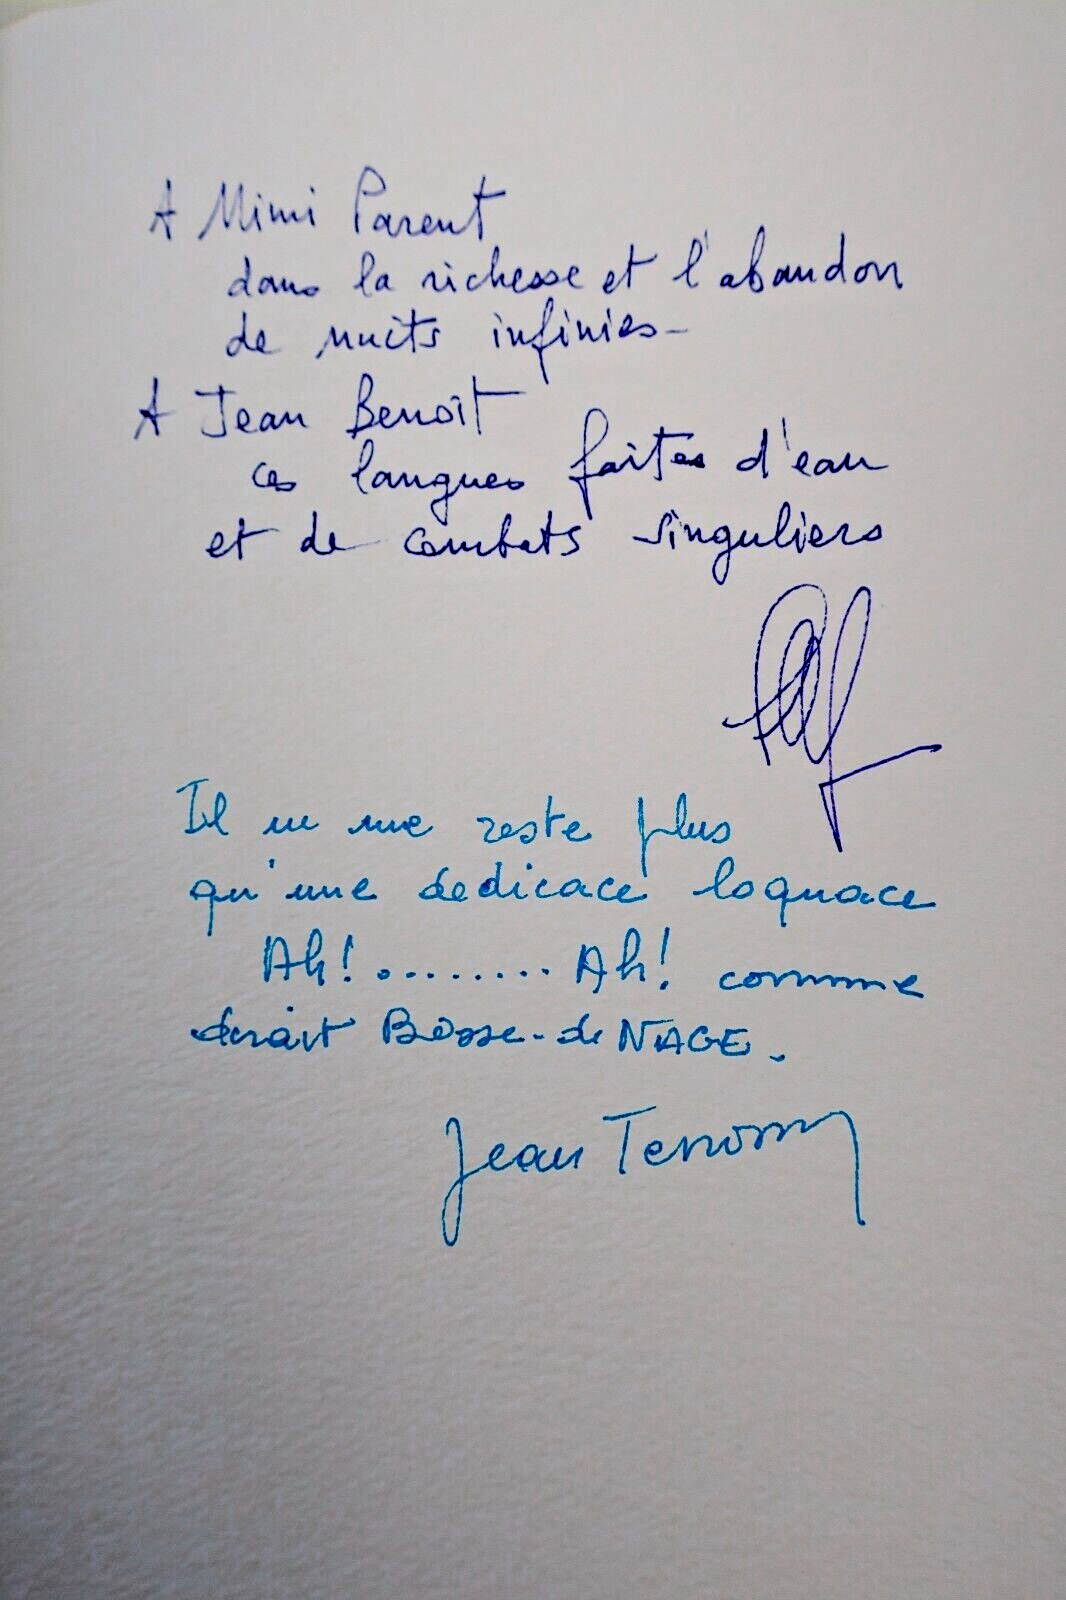 A Mimi Parent
dans la richesse et l'abandon
de nuits infinies -
A Jean Benoît
ces langues faites d'eau
et de combats singuliers
Il ne me reste plus
qu'une dedicace loquace
Ah!......... Ah! comme
dirait Bosse-de NAGE.
Jean Terrossian